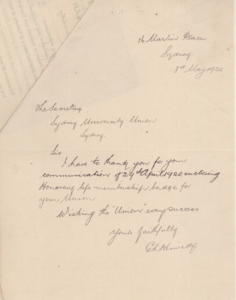 Martin Place
Sydney
3rd May 1920
The Secretary
Sydney University Union
Sydney
Sir
I have to thank you for your
communication of 29th April 1920 enclosing
Honorary life membership badge for
your Union
Wishing the "Union" every success
Yours faithfully